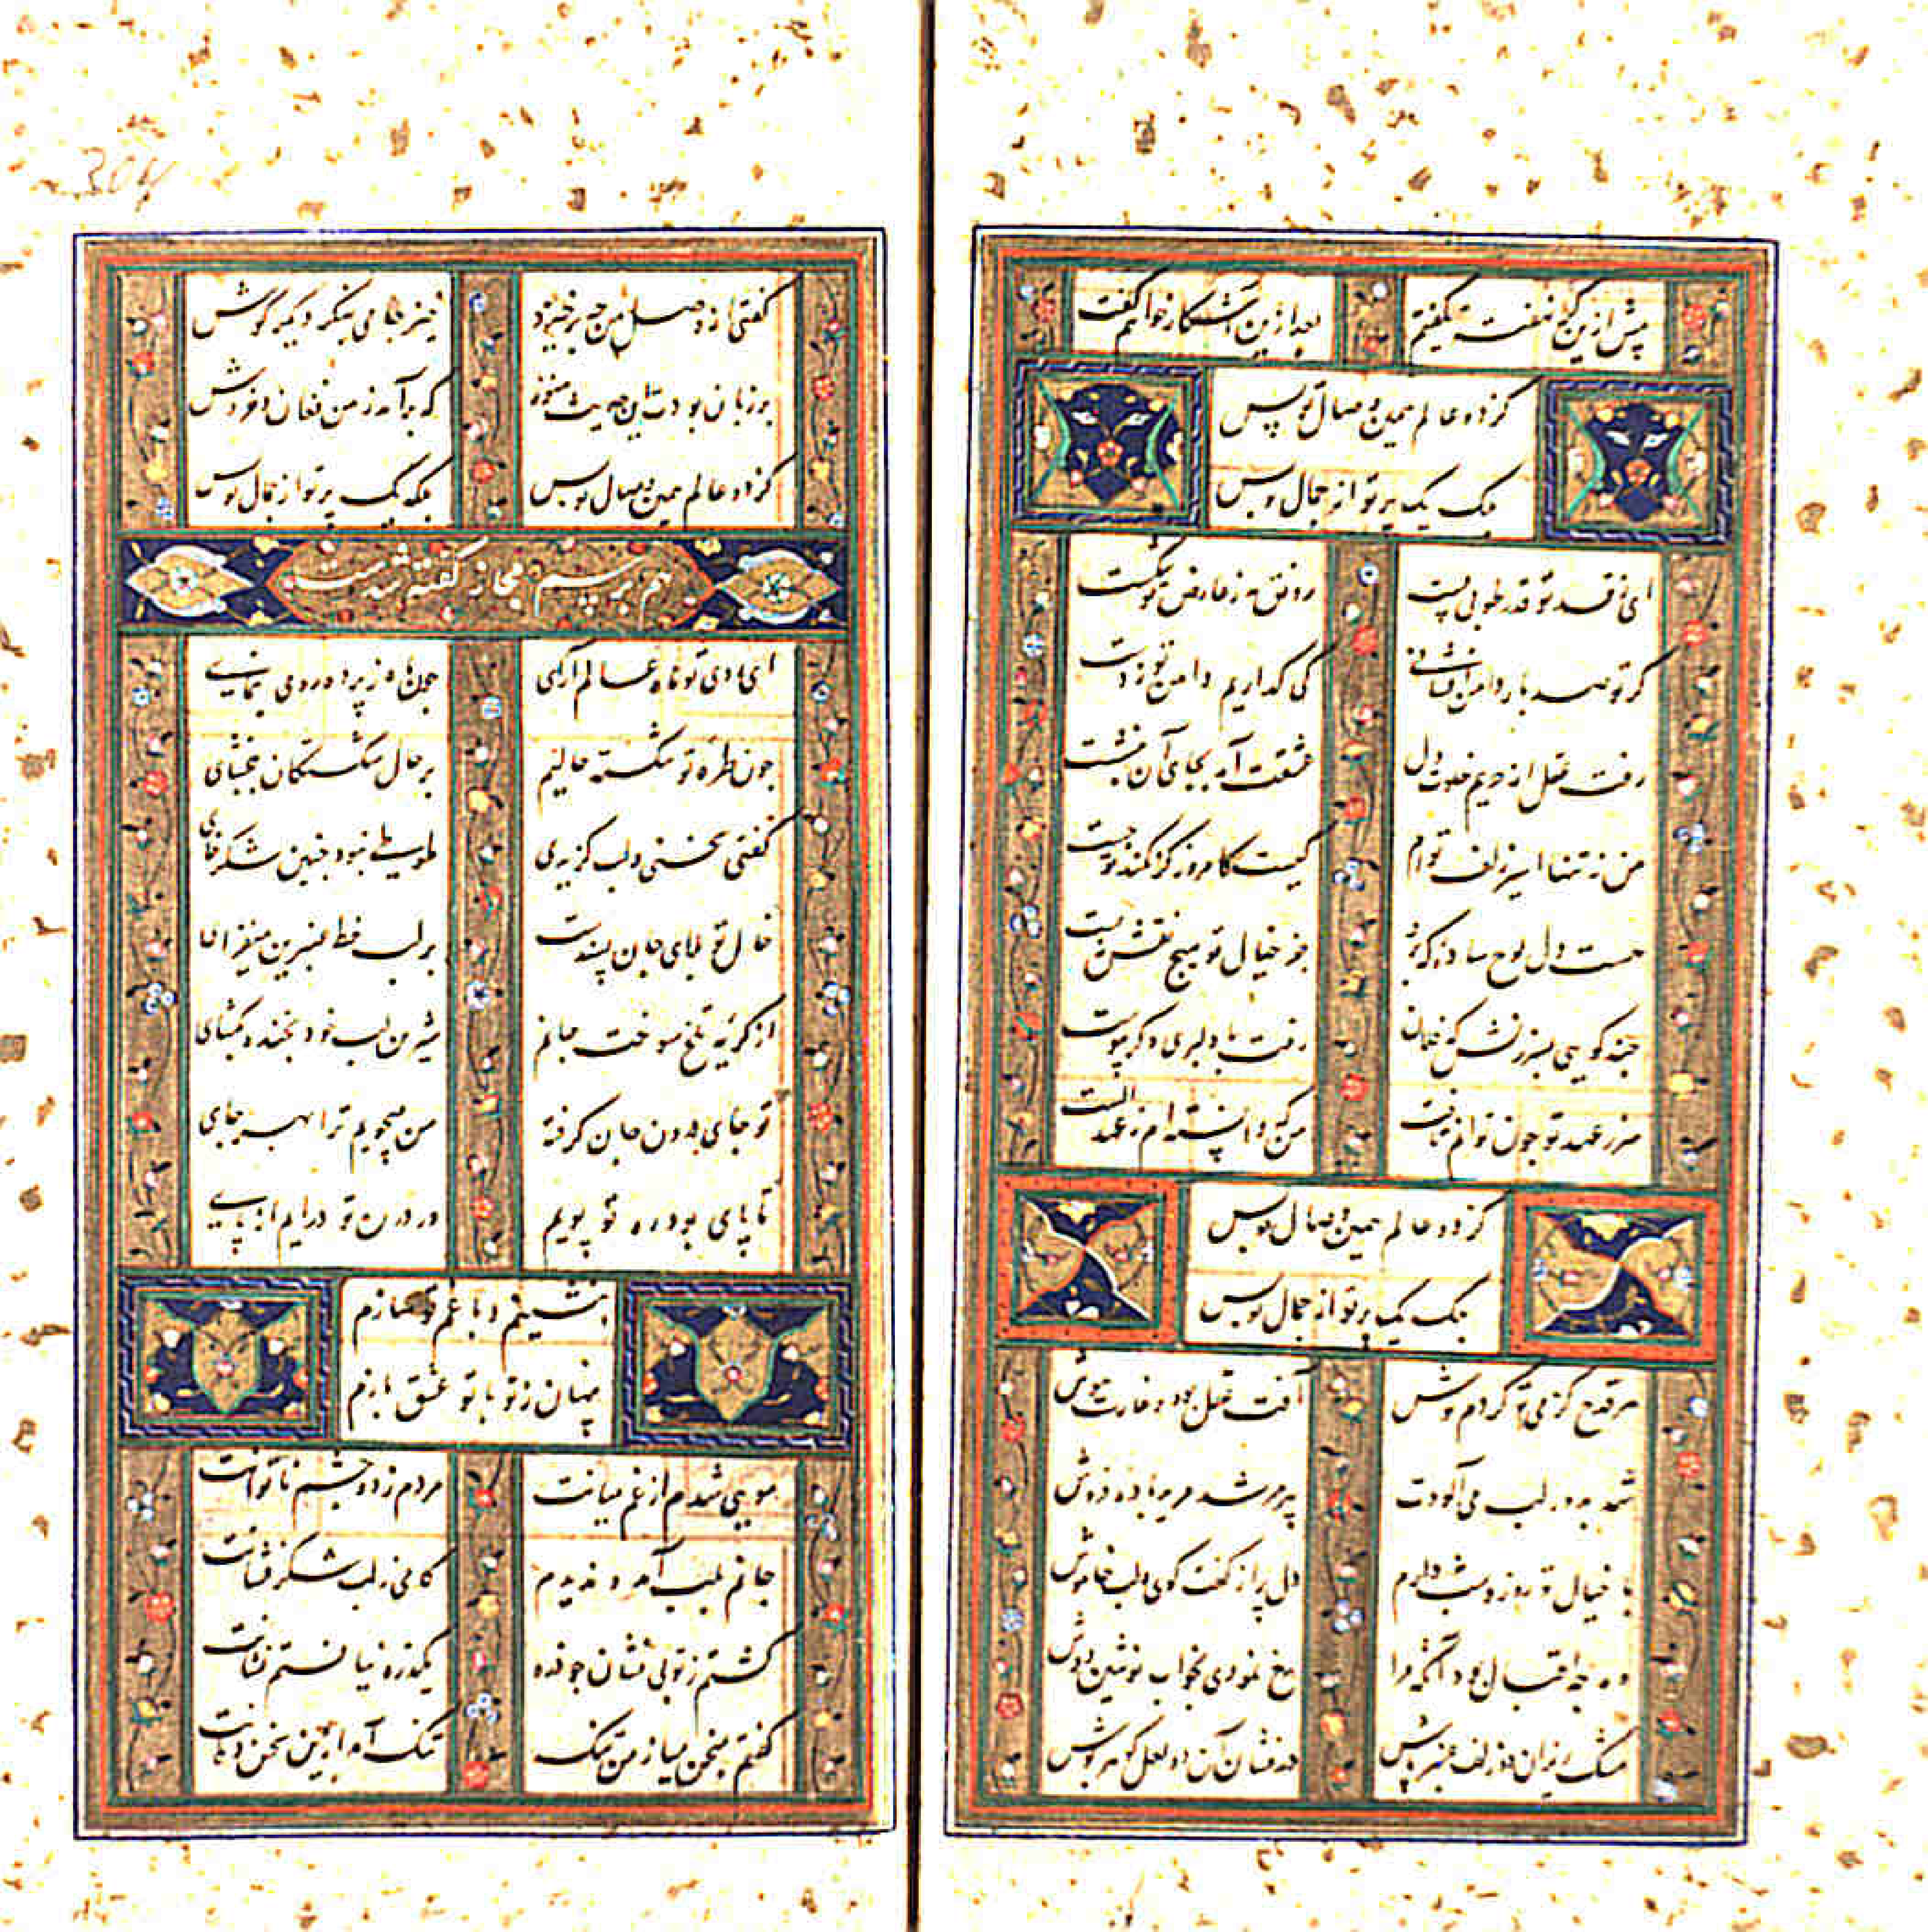 پیش ازین گر نهفته میگفتم بعد ازین آشکار خواهم گفت
کز دو عالم همین وصال تو بس
بلکه یک پرتو از جمال تو بس
ای ز قد تو قدر طوبی پست رونق مه ز عارض تو شکست
گر تو صد بار دامن افشانی کی گذاریم دامن تو ز دست
رفت عقل از حریم خلوت دل عشقت آمد بجای آن بنشست
من نه تنها اسیر زلف توام کیست کامروز کز کمند تو جست
هست دل لوح ساده‌ای که برو جز خیال تو هیچ نقش نبست
چند گویی بسرزنش که فلان رفت با دلبری دگر پیوست
من که دانسته ام ز عهد الست
کز دو عالم همین وصال تو بس
بلکه یک پرتو از جمال تو بس
هر قدح کز می تو کردم نوش آفت عقل بود و غارت هوش
شد بدور لب می آلودت پیر مرشد مرید باده فروش
با خیال تو روز و شب دارم دل پر از گفت گوی و لب خاموش
وه چه اقبال بود آنکه مرا رخ نمودی بخواب نوشین دوش
مشک ریزان دو زلف عنبرپوش در فشان آن دو لعل گوهرپوش
گفتی از وصل من چه برخیزد خیز جامی دگر مگیر و گوش
بر زبان بودت این حدیث هنوز که برآمد ز من فغان و خروش
کز دو عالم همین وصال تو بس بلکه یک پرتو از جمال تو بس
هم بر سم مجاز گفته شده است
ای روی تو ماه عالم آرای چون ماه ز پرده روی بنمای
چون طره تو شکسته حالیم بر حال شکستگان ببخشای
گفتی سخنی و لب گزیدی طوطی نبود چنین شکرخای
خال تو بلای جان پسندست بر لب خط عنبرین میفزای
از گریه تلخ سوخت جانم شیرین لب خود بخنده بگشای
تو جای درون جان گرفته من میجویم ترا بهر جای
تا پای بود ره تو پویم ور در ره تو درآیم از پای
بنشینم و با غم تو سازم
پنهان ز تو با تو عشق بازم
مویی شدم از غم میانت مردم ز دو چشم ناتوانت
جانم بلب آمد و ندیدم کامی ز لب شکرفشانت
گشتم ز تو بی نشان چو ذره یکذره نیافتم نشانت
گفتم سخن میا ز من تنک تنک آمد ازین سخن دهانت